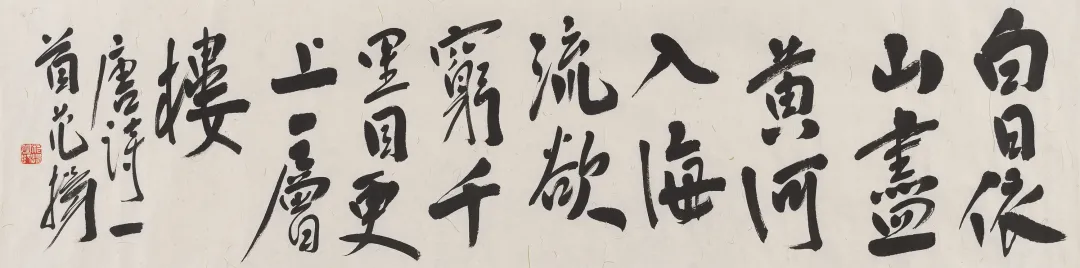 白日依
山盡
黄河
入海
流欲
窮千
里目更
上一層
樓
唐詩一
首范揚